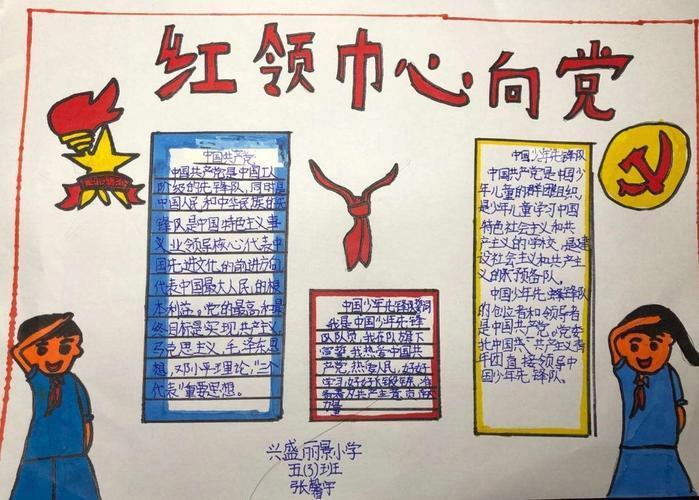 红领巾心向党
中国共产党
中国共产党是中国工人
阶级的先锋队，同时是
中国人民和中华民族的先
锋队是中国特色主义事
业领导核心代表中
国先进文化的前进方向
代表中国最大人民的根
本利益。党的最高和最
终目标是实现共产主义
马克思主义，毛泽东思
想，邓小平理论，“三个
代表”重要思想。
中国少年先锋队
我是中国少年先锋
队队员，我在队旗下
宣誓，我热爱中国共
产党，热爱人民，好好
学习，好好
共产主义
力量
中国少年先锋队
中国共产党是中国少
年儿童的群团组织
是少年儿童学习中国
特色社会主义和共
产主义的学校，是建
设社会主义和共产主
义的预备队。
中国少年先锋队
的创立者和领导者
是中国共产党。党委
共产主义青
年团直接领导中
国少年先锋队。
兴盛丽景小学
五(3)班
张馨宇